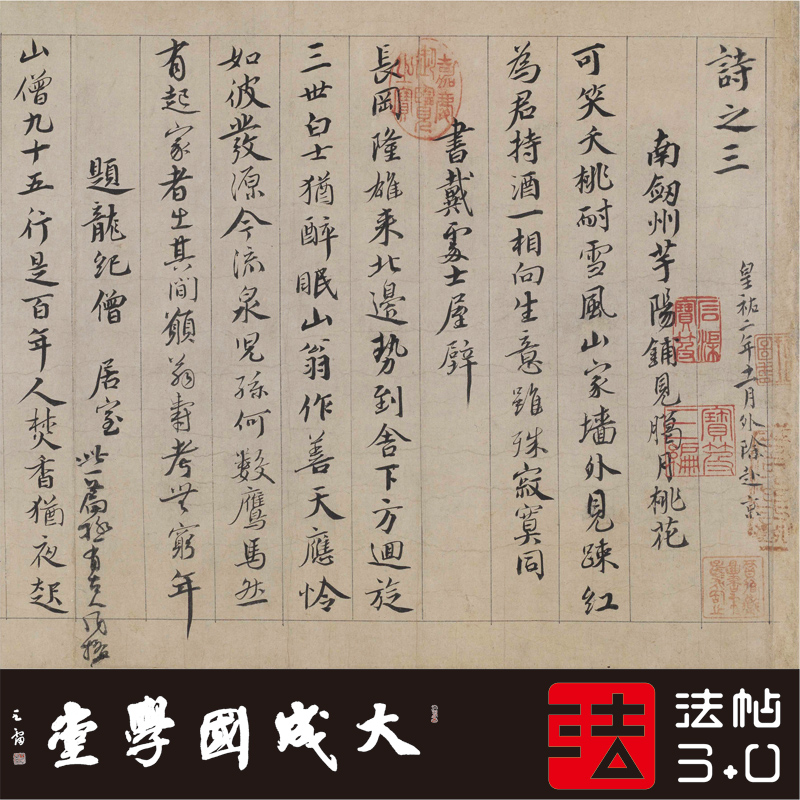 皇祐二年十一月外除赴京
詩之三
南劔州芋陽鋪見臘月桃花
可笑夭桃耐雪風山家墻外見踈紅
為君持酒一相向生意雖殊寂寞同
書戴處士屋壁
長岡隆雄來北邊勢到舍下方迴旋
三世白士猶醉眠山翁作善天應憐
如彼發源今流泉兒孫何數鷹馬然
有起家者出其間願翁壽考無窮年
題龍紀僧居室 此一篇極有古人風格
山僧九十五行是百年人焚香猶夜起
嘉慶御覽之寶
寶笈三編
大成國學堂
法
法帖
3.0